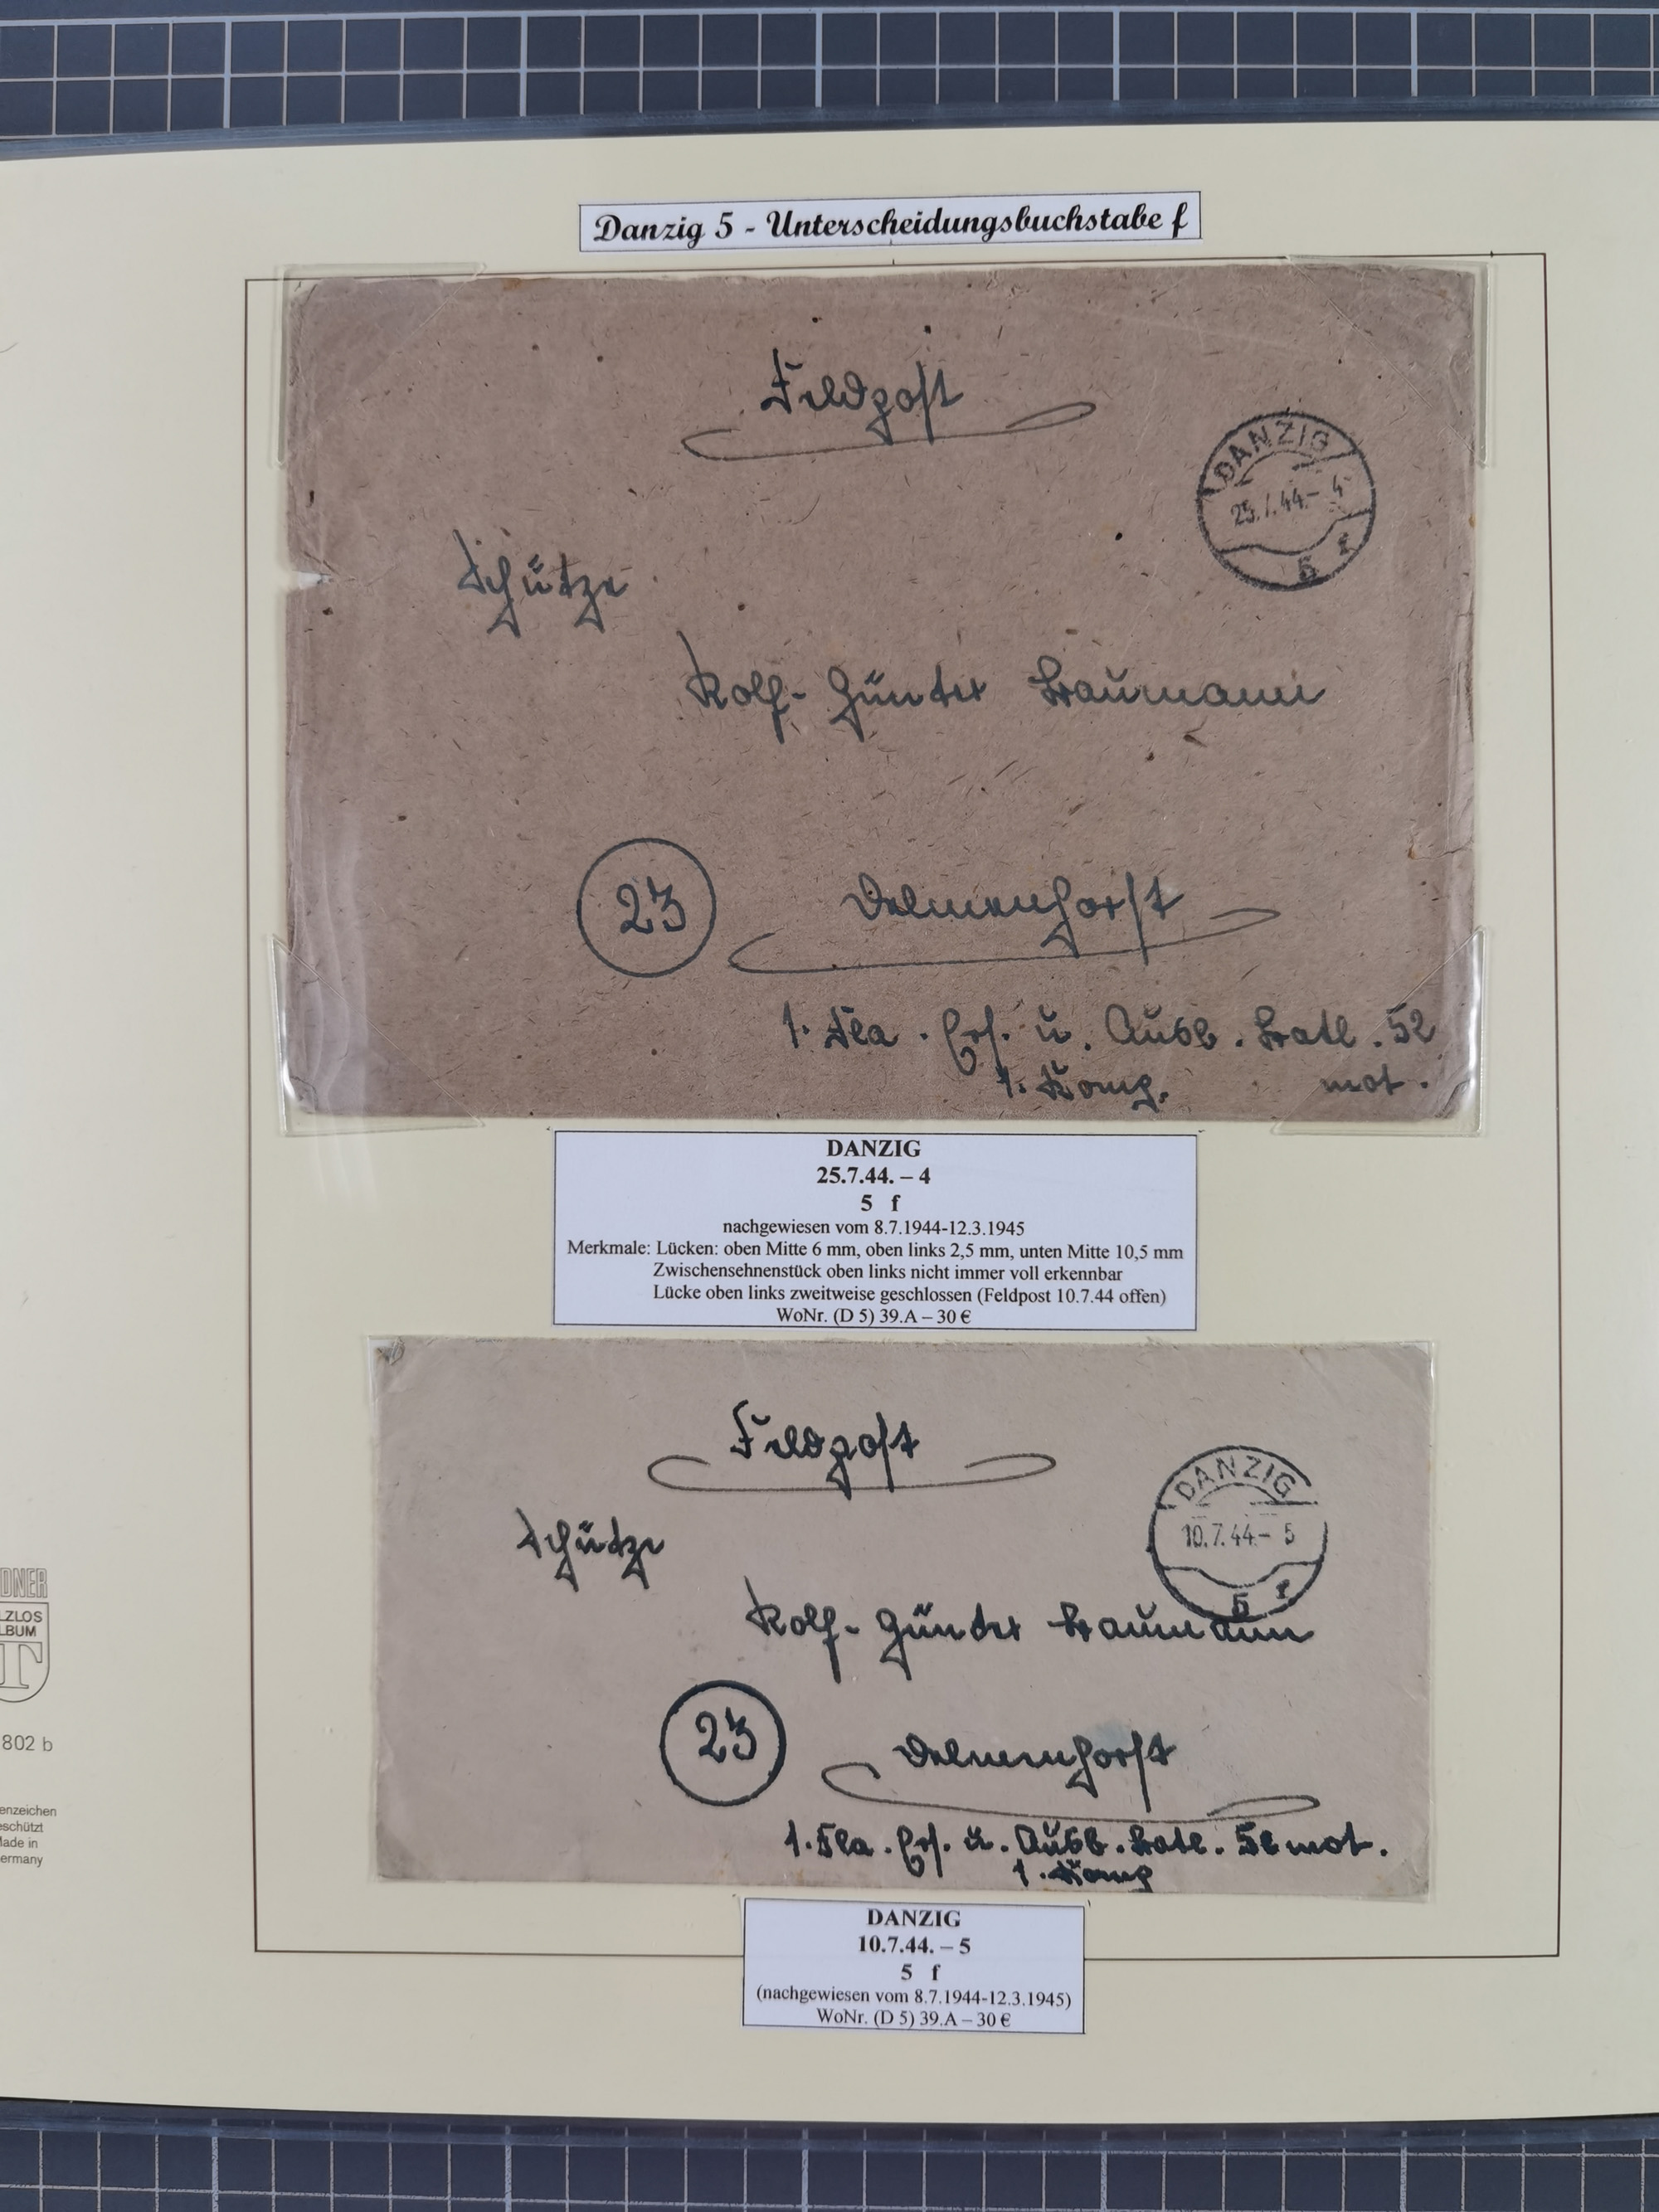 Danzig 5 - Unterscheidungsbuchstabe f
Feldpost
DANZIG
25.7.44.- 4
5 f
Schütze
Rolf-Günter Braumann
23 Delmenhorst
1. Fla. Ers. u. Ausb. Batl. 52
1. Komp. mot.
DANZIG
25.7.44. – 4
5 f
nachgewiesen vom 8.7.1944-12.3.1945
Merkmale: Lücken: oben Mitte 6 mm, oben links 2,5 mm, unten Mitte 10,5 mm
Zwischensehnenstück oben links nicht immer voll erkennbar
Lücke oben links zweitweise geschlossen (Feldpost 10.7.44 offen)
WoNr. (D 5) 39.A – 30 €
Feldpost
DANZIG
10.7.44.- 5
5 f
Schütze
Rolf-Günter Braumann
23 Delmenhorst
1. Fla. Ers. u. Ausb. Batl. 52 mot.
1. Komp
DANZIG
10.7.44. – 5
5 f
(nachgewiesen vom 8.7.1944-12.3.1945)
WoNr. (D 5) 39.A – 30 €
DNER
LZLOS
LBUM
T
802 b
enzeichen
eschützt
Made in
ermany